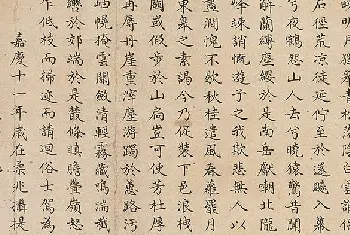 明月獨舉青松落陰白雲誰
石徑荒涼徒延佇至於還飆入幕
兮夜鶴怨山人去兮曉猿驚昔聞
解蘭縛塵纓於是南岳獻嘲北隴
峰竦誚慨遊子之我欺悲無人以
盡澗愧不歇秋桂遣風春蘿罷月
東皋之素謁今乃促裝下邑浪栧
闕或假步於山扃豈可使芳杜厚
再辱丹崖重滓塵游躅於蕙路污
岫幌掩雲關斂清輕霧藏鳴湍截
轡於郊端於是叢條瞋膽疊穎怒
乍低枝而掃迹而請迴俗士駕為
嘉慶十一年歲在柔兆攝提